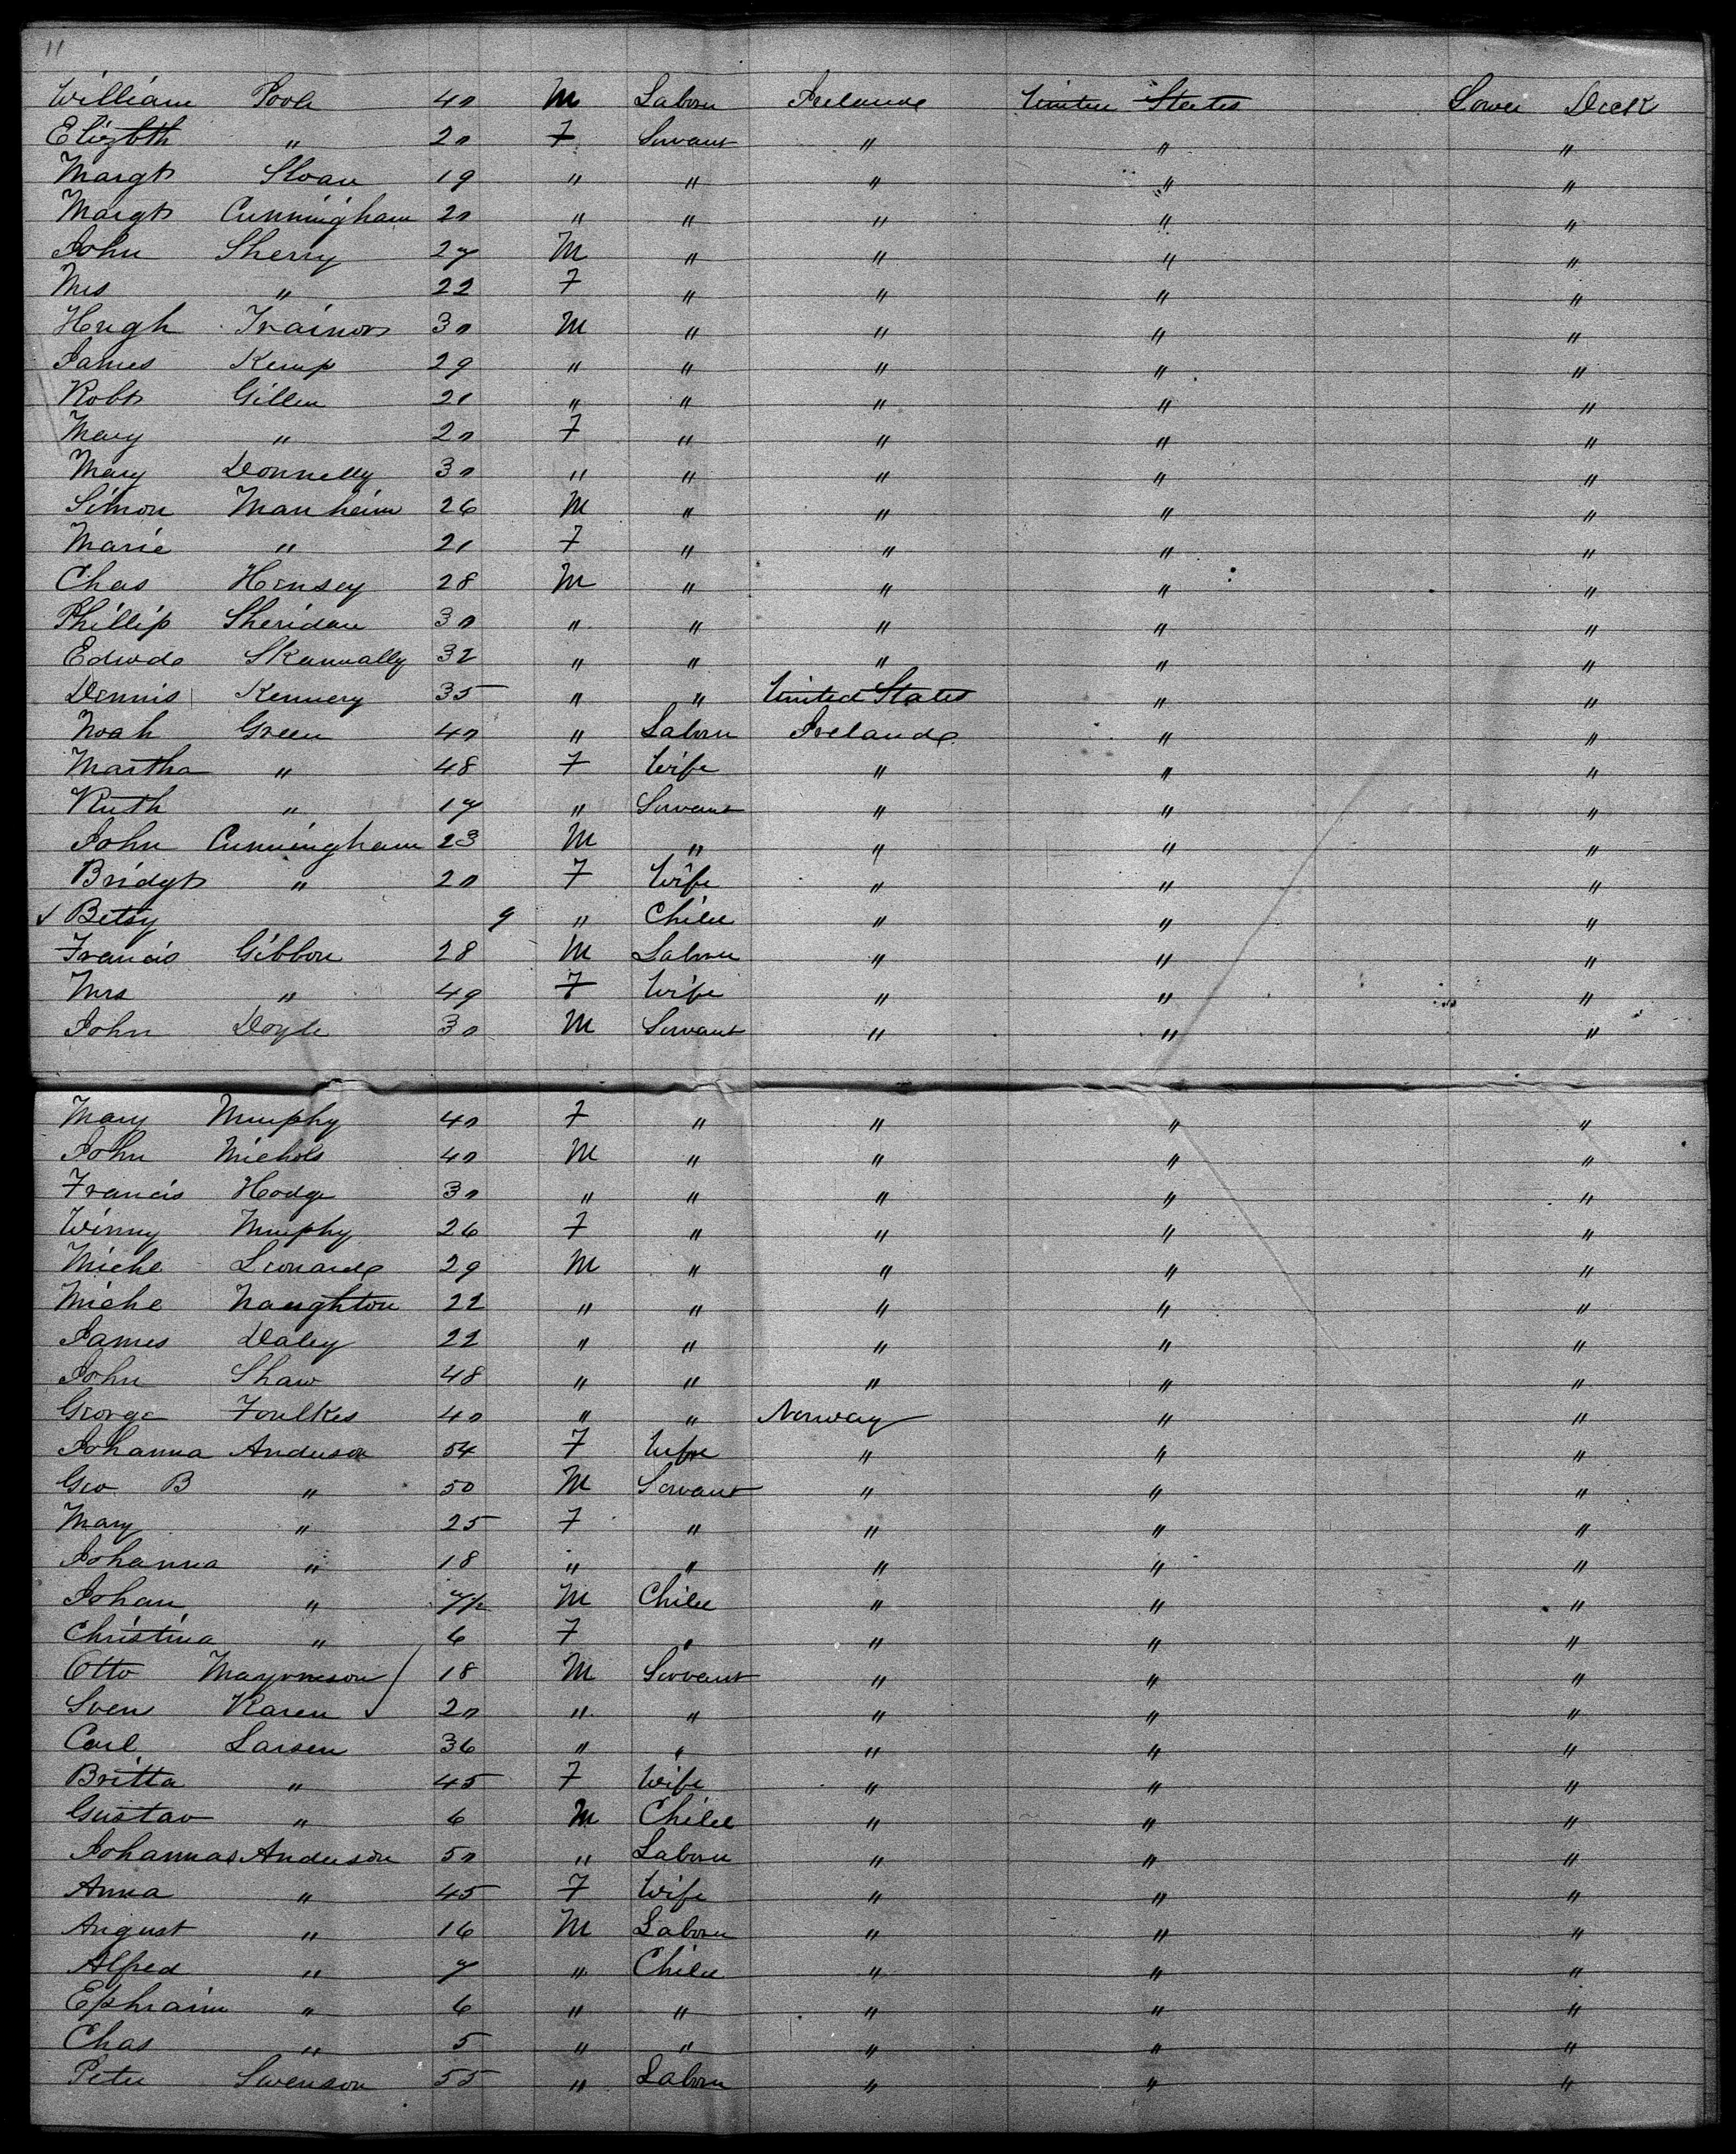 11
William Poole 40 M Laborer Ireland United States Lower Deck
Elizbth " 20 F Servant " " "
Margt Sloan 19 " " " " "
Margt Cunningham 20 " " " " "
John Sherry 27 M " " " "
Mrs " 22 F " " " "
Hugh Trainor 30 M " " " "
James Kemp 29 " " " " "
Robt Gillen 21 " " " " "
Mary " 20 F " " " "
Mary Donnelly 30 " " " " "
Simon Manheim 26 M " " " "
Marie " 21 F " " " "
Chas Hensey 28 M " " " "
Phillip Sheridan 30 " " " " "
Edwd Skannally 32 " " " " "
Dennis Kennery 35 " " United States " "
Noah Green 40 " Laborer Ireland " "
Martha " 48 F Wife " " "
Ruth " 17 " Servant " " "
John Cunningham 23 M " " " "
Bridgt " 20 F Wife " " "
✓ Betsy 9 " Child " " "
Francis Gibbon 28 M Laborer " " "
Mrs " 49 F Wife " " "
John Doyle 30 M Servant " " "
Mary Murphy 40 F " " " "
John Nichols 40 M " " " "
Francis Hodge 30 " " " " "
Winny Murphy 26 F " " " "
Michl Leonard 29 M " " " "
Michl Naughton 22 " " " " "
James Daley 22 " " " " "
John Shaw 48 " " " " "
George Foulkes 40 " " Norway " "
Johanna Anderson 54 F Wife " " "
Geo B " 50 M Servant " " "
Mary " 25 F " " " "
Johanna " 18 " " " " "
Johan " 7½ M Child " " "
Christina " 6 F " " " "
Otto 18 M Servant " " "
Sven Karen 20 " " " " "
Carl Larsen 36 " " " " "
Britta " 45 F Wife " " "
Gustav " 6 M Child " " "
Johannas Anderson 50 " Laborer " " "
Anna " 45 F Wife " " "
August " 16 M Laborer " " "
Alfred " 7 " Child " " "
Ephraim " 6 " " " " "
Chas " 5 " " " " "
Peter Swenson 55 " Laborer " " "